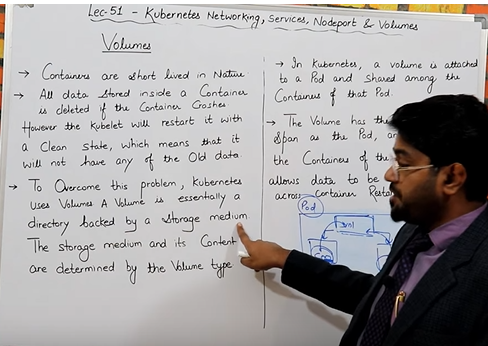 Lec-51 - Kubernetes Networking, Services, Nodeport & Volumes
Volumes
→ Containers are short lived in Nature.
→ All data stored inside a Container
is deleted if the Container Crashes
However the Kubelet will restart it with
a Clean state, which means that it
will not have any of the Old data.
→ To Overcome this problem, Kubernetes
uses Volumes A Volume is essentially a
directory backed by a storage medium
The storage medium and its Content
are determined by the Volume type
→ In Kubernetes, a volume is attached
to a Pod and shared among the
Containers of that Pod.
→ The Volume has the
Span as the Pod,
the Containers of the
allows data to be
across Container
Pod